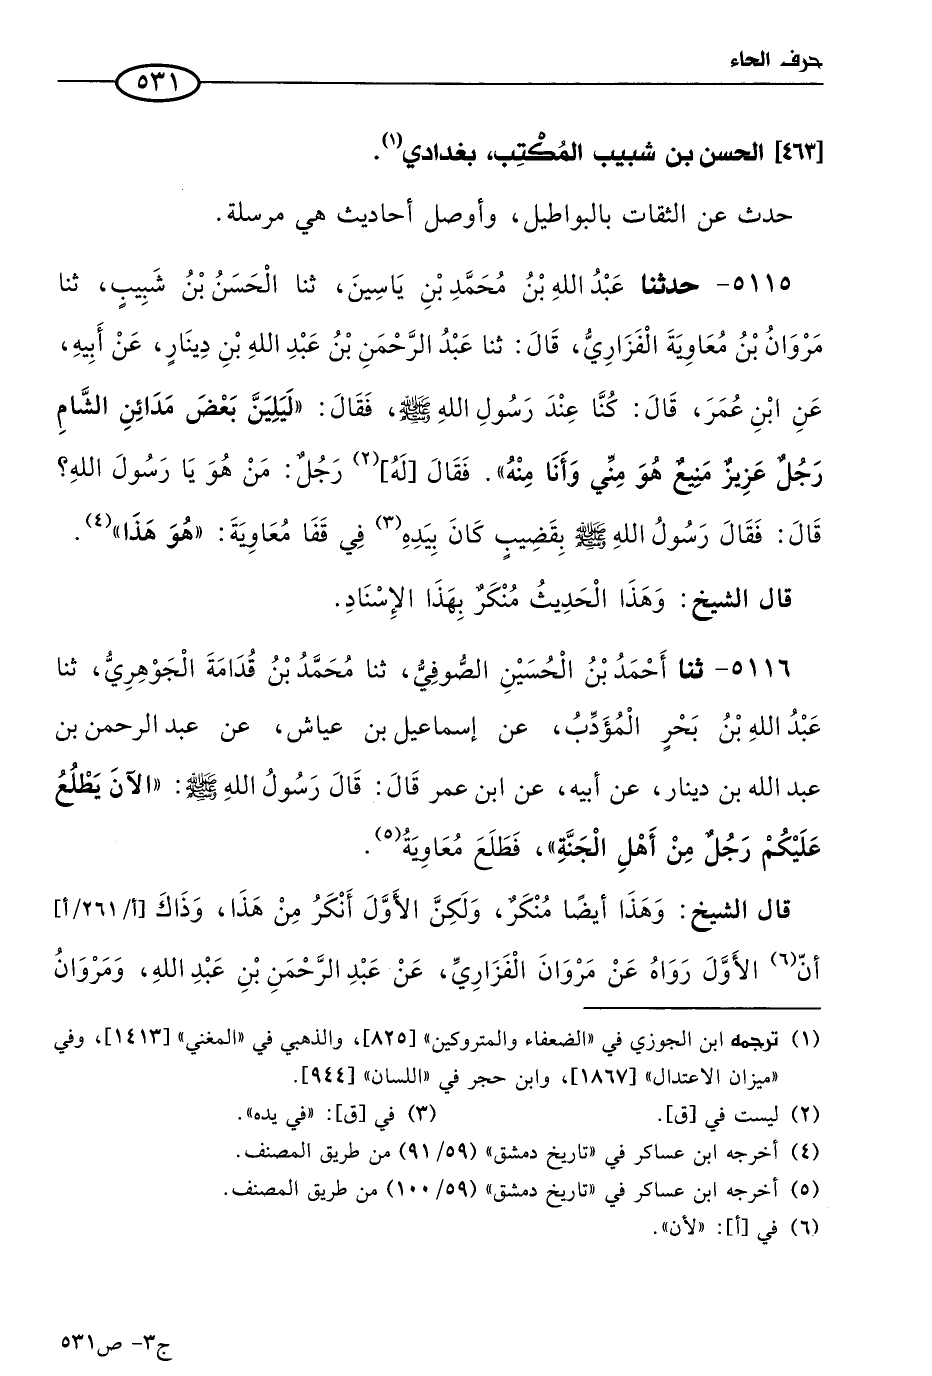 حرف الحاء
٥٣١
[٤٦٣] الحسن بن شبيب المُكْتِب، بغدادي(١).
حدث عن الثقات بالبواطيل، وأوصل أحاديث هي مرسلة.
٥١١٥- حدثنا عَبْدُ اللهِ بْنُ مُحَمَّدِ بْنِ يَاسِينَ، ثنا الْحَسَنُ بْنُ شَبِيبٍ، ثنا
مَرْوَانُ بْنُ مُعَاوِيَةَ الْفَزَارِيُّ، قَالَ: ثنا عَبْدُ الرَّحْمَنِ بْنُ عَبْدِ اللهِ بْنِ دِينَارٍ، عَنْ أَبِيهِ،
عَنِ ابْنِ عُمَرَ، قَالَ: كُنَّا عِنْدَ رَسُولِ اللهِ ﷺ، فَقَالَ: «لَيَلِيَنَّ بَعْضَ مَدَائِنِ الشَّامِ
رَجُلٌ عَزِيزٌ مَنِيعٌ هُوَ مِنِّي وَأَنَا مِنْهُ». فَقَالَ [لَهُ](٢) رَجُلٌ: مَنْ هُوَ يَا رَسُولَ اللهِ؟
قَالَ: فَقَالَ رَسُولُ اللهِ ﷺ بِقَضِيبٍ كَانَ بِيَدِهِ(٣) فِي قَفَا مُعَاوِيَةَ: «هُوَ هَذَا»(٤).
قال الشيخ: وَهَذَا الْحَدِيثُ مُنْكَرٌ بِهَذَا الإِسْنَادِ.
٥١١٦- ثنا أَحْمَدُ بْنُ الْحُسَيْنِ الصُّوفِيُّ، ثنا مُحَمَّدُ بْنُ قُدَامَةَ الْجَوْهَرِيُّ، ثنا
عَبْدُ اللهِ بْنُ بَحْرٍ الْمُؤَدِّبُ، عن إسماعيل بن عياش، عن عبد الرحمن بن
عبد الله بن دينار، عن أبيه، عن ابن عمر قَالَ: قَالَ رَسُولُ اللهِ ﷺ: «الآنَ يَطْلُعُ
عَلَيْكُمْ رَجُلٌ مِنْ أَهْلِ الْجَنَّةِ»، فَطَلَعَ مُعَاوِيَةُ(٥).
قال الشيخ: وَهَذَا أيضًا مُنْكَرٌ، وَلَكِنَّ الأَوَّلَ أَنْكَرُ مِنْ هَذَا، وَذَاكَ [أ/٢٦١/أ]
أنّ(٦) الأَوَّلَ رَوَاهُ عَنْ مَرْوَانَ الْفَزَارِيِّ، عَنْ عَبْدِ الرَّحْمَنِ بْنِ عَبْدِ اللهِ، وَمَرْوَانُ
(١) ترجمه ابن الجوزي في «الضعفاء والمتروكين» [٨٢٥]، والذهبي في «المغني» [١٤١٣]، وفي
«ميزان الاعتدال» [١٨٦٧]، وابن حجر في «اللسان» [٩٤٤].
(٢) ليست في [ق]. (٣) في [ق]: «في يده».
(٤) أخرجه ابن عساكر في «تاريخ دمشق» (٩١/٥٩) من طريق المصنف.
(٥) أخرجه ابن عساكر في «تاريخ دمشق» (١٠٠/٥٩) من طريق المصنف.
(٦) في [أ]: «لأن».
ج٣- ص٥٣١